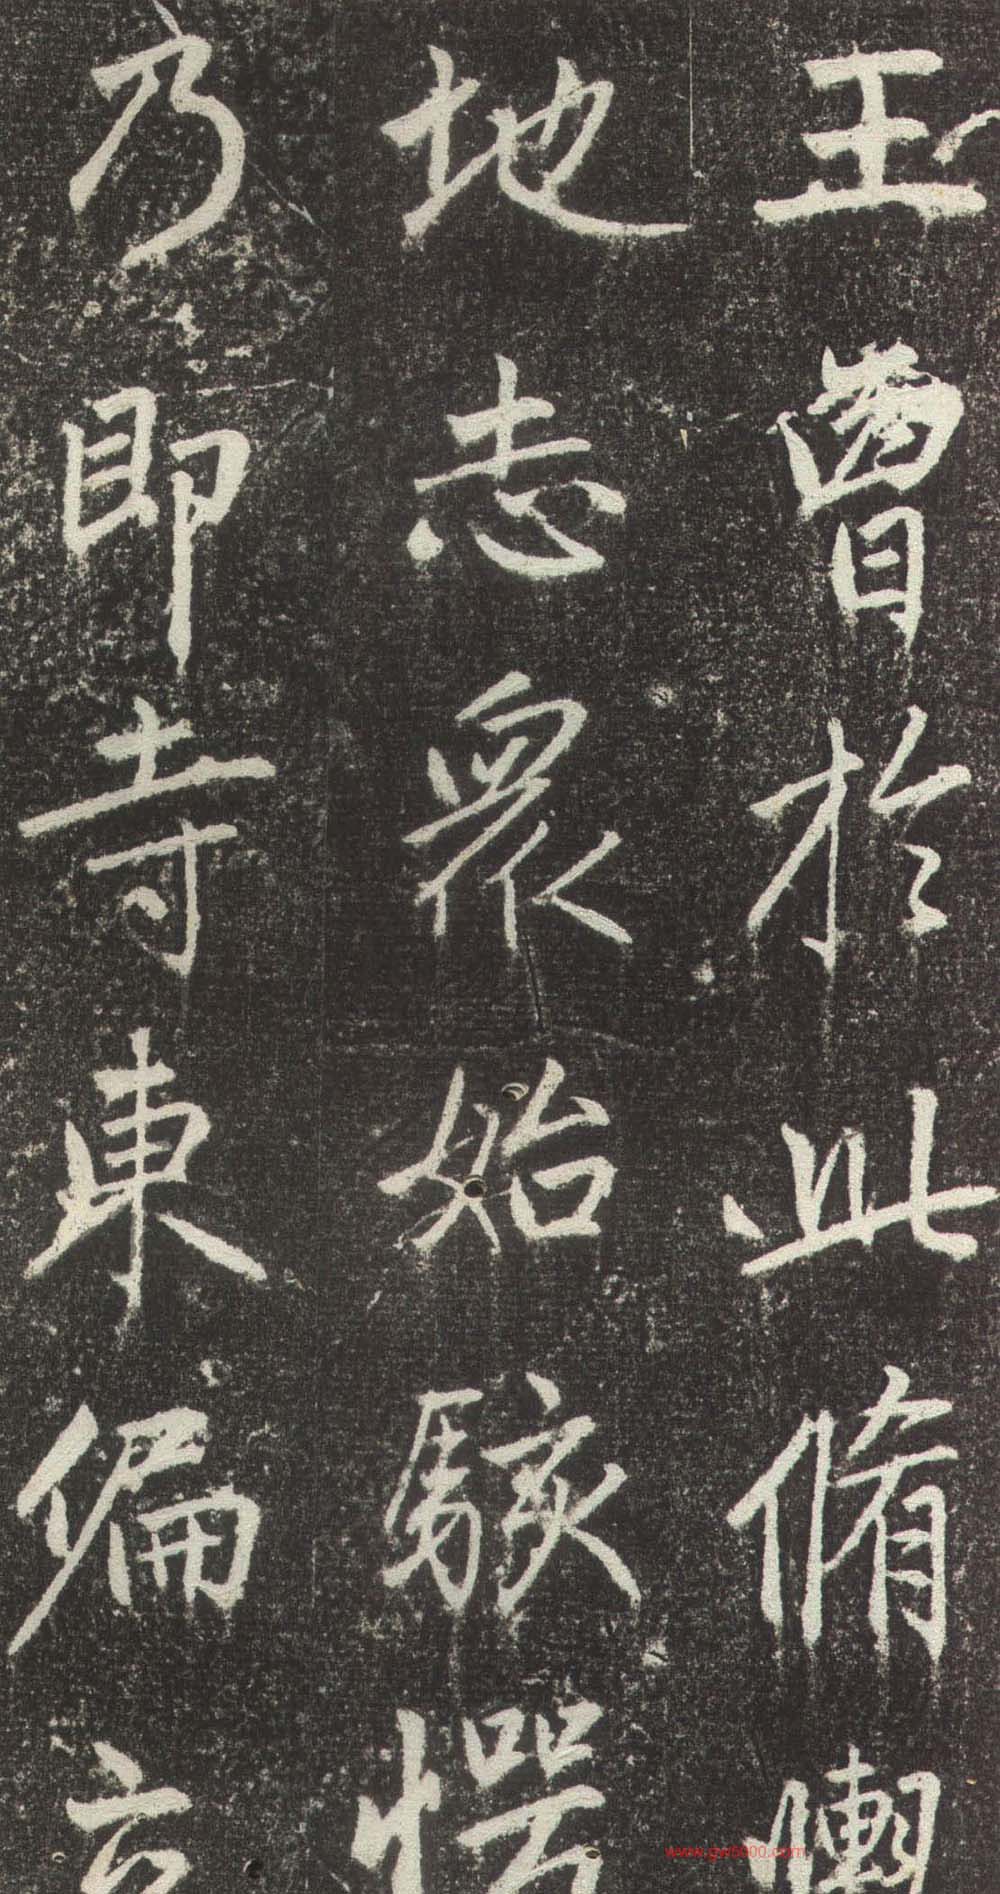 王曾於此脩
地志衆始駭愕
乃即寺東偏
www.gw5000.com